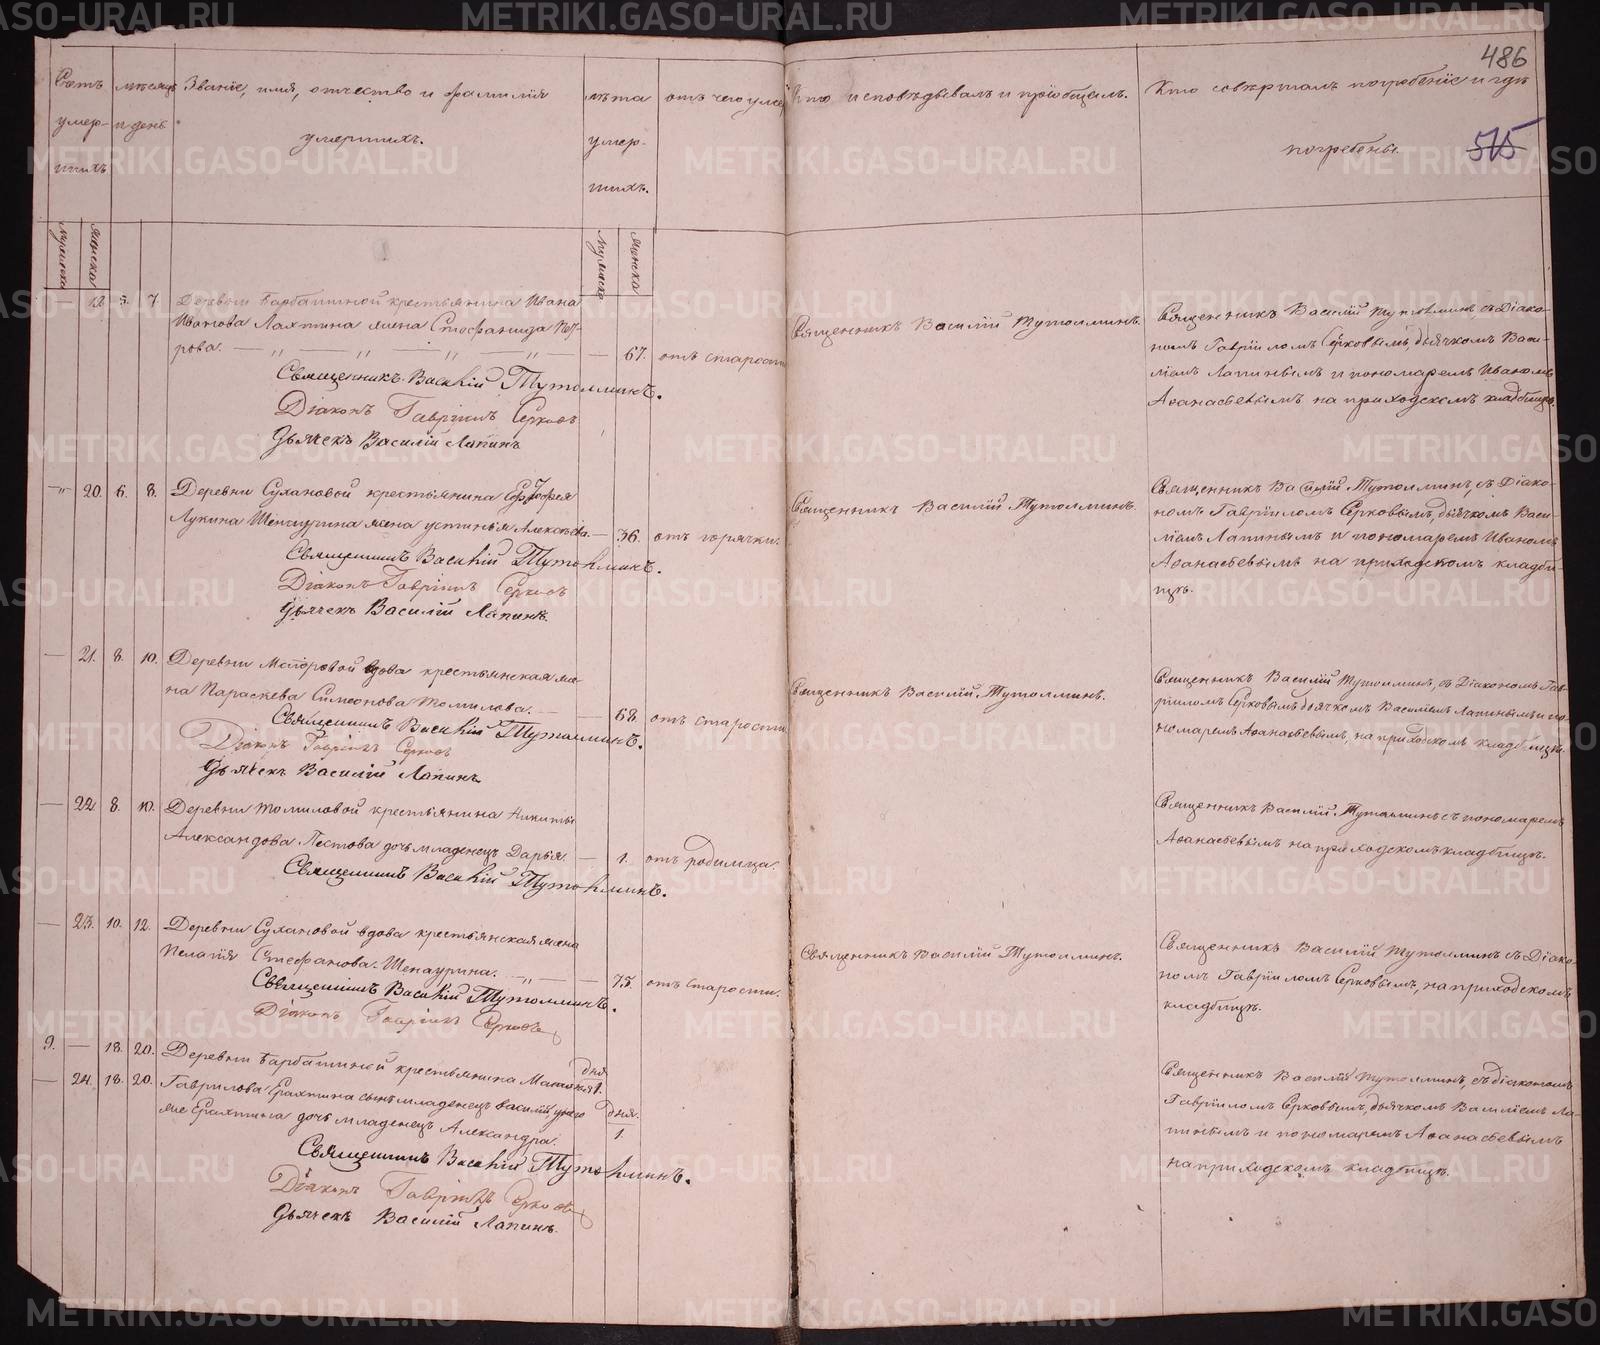 486
515
Счетъ умершихъ
мѣсяцъ и день
Званіе, имя, отчество и фамилія
умершихъ.
лѣта умершихъ.
отъ чего умеръ
Кто исповѣдывалъ и пріобщалъ.
Кто совершалъ погребеніе и гдѣ
погребены.
мужеска
женска
мужеска
женска
— 19. 5. 7. Деревни Барбашиной крестьянина Ивана
Иванова Лахтина жена Стефанида Пет-
рова. — 67. отъ старости
Священникъ Василій Тутолминъ.
Діаконъ Гавріилъ Серковъ
Дьячекъ Василій Лапинъ
Священникъ Василій Тутолминъ.
Священникъ Василій Тутолминъ, съ Діако-
номъ Гавріиломъ Серковымъ, дьячкомъ Васи-
ліемъ Лапинымъ и пономаремъ Иваномъ
Аѳанасьевымъ на приходскомъ кладбищѣ.
20. 6. 8. Деревни Сухановой крестьянина
Лукина жена Устинья Алексѣева — 36. отъ горячки.
Священникъ Василій Тутолминъ.
Діаконъ Гавріилъ Серковъ
Дьячекъ Василій Лапинъ.
Священникъ Василій Тутолминъ.
Священникъ Василій Тутолминъ, съ Діако-
номъ Гавріиломъ Серковымъ, дьячкомъ Васи-
ліемъ Лапинымъ и пономаремъ Иваномъ
Аѳанасьевымъ на приходскомъ кладби-
щѣ.
— 21. 8. 10. Деревни вдова крестьянская же-
на Параскева Симеонова Томилова. — 68. отъ старости
Священникъ Василій Тутолминъ.
Діаконъ Гавріилъ Серковъ
Дьячекъ Василій Лапинъ
Священникъ Василій Тутолминъ.
Священникъ Василій Тутолминъ, съ Діакономъ Гав-
ріиломъ Серковымъ дьячкомъ Василіемъ Лапинымъ и по-
номаремъ Аѳанасьевымъ, на приходскомъ кладбищѣ.
— 22. 8. 10. Деревни Томиловой крестьянина Никиты
Александрова Пестова дочь младенецъ Дарья. — 1. отъ родимца.
Священникъ Василій Тутолминъ.
Священникъ Василій Тутолминъ съ пономаремъ
Аѳанасьевымъ на приходскомъ кладбищѣ.
— 23. 10. 12. Деревни Сухановой вдова крестьянская жена
Пелагія Стефанова Шепаурина. — 75. отъ старости.
Священникъ Василій Тутолминъ.
Діаконъ Гавріилъ Серковъ
Священникъ Василій Тутолминъ.
Священникъ Василій Тутолминъ съ Діако-
номъ Гавріиломъ Серковымъ, на приходскомъ
кладбищѣ.
9. — 18. 20. Деревни Барбашиной крестьянина дня
— 24. 18. 20. Гаврилова Ерахтина сынъ младенецъ Василій, 1. дня
же Ерахтина дочь младенецъ Александра. 1.
Священникъ Василій Тутолминъ.
Діаконъ Гавріилъ Серковъ
Дьячекъ Василій Лапинъ.
Священникъ Василій Тутолминъ, съ діакономъ
Гавріиломъ Серковымъ, дьячкомъ Василіемъ Ла-
пинымъ и пономаремъ Аѳанасьевымъ
на приходскомъ кладбищѣ.
METRIKI.GASO-URAL.RU